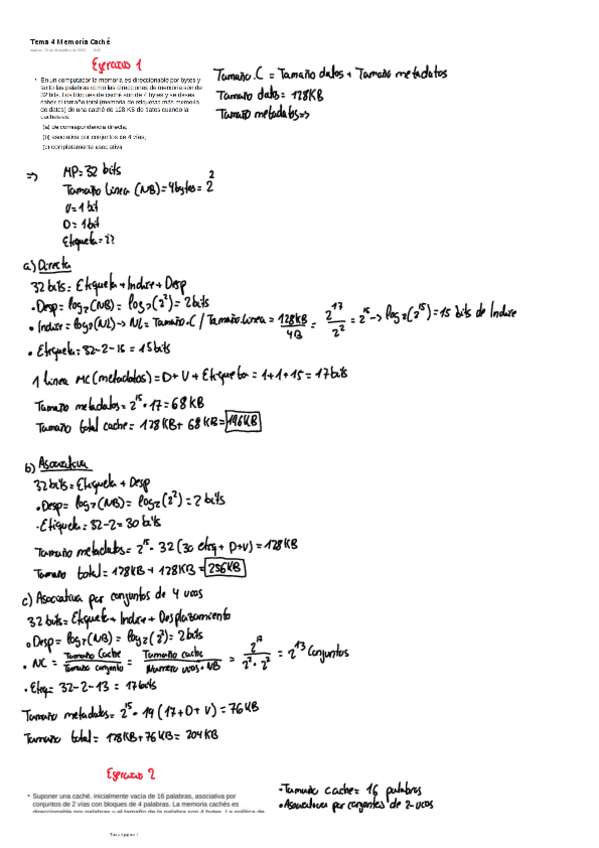 Tema 4 Memoria Caché
Ejercicio 1
• En un computador la memoria es direccionable por bytes y
tanto las palabras como las direcciones de memoria son de
32 bits. Los bloques de caché son de 4 bytes y se desea
saber el tamaño total (memoria de etiquetas más memoria
de datos) de una caché de 128 KB de datos cuando la
caché es:
(a) de correspondencia directa;
(b) asociativa por conjuntos de 4 vías;
(c) completamente asociativa
Tamaño.C = Tamaño datos + Tamaño metadatos
Tamaño datos = 128KB
Tamaño metadatos =>
=> MP = 32 bits
Tamaño linea (NB) = 4bytes = 2^2
V = 1 bit
D = 1 bit
Etiqueta = i?
a) Directa
32 bits = Etiqueta + Indice + Desp
• Desp = log2(NB) = log2(2^2) = 2 bits
• Indice = log2(NL) -> NL = Tamaño.C / Tamaño linea = 128KB / 4B = 2^17 / 2^2 = 2^15 -> log2(2^15) = 15 bits de Indice
• Etiqueta = 32-2-15 = 15 bits
1 linea MC (metadatos) = D + V + Etiqueta = 1+1+15 = 17 bits
Tamaño metadatos = 2^15 · 17 = 68 KB
Tamaño total cache = 128KB + 68 KB = 196KB
b) Asociativa
32 bits = Etiqueta + Desp
• Desp = log2(NB) = log2(2^2) = 2 bits
· Etiqueta = 32-2 = 30 bits
Tamaño metadatos = 2^15 · 32 (30 etiq + D+V) = 128KB
Tamaño total = 128KB + 128KB = 256KB
c) Asociativa por conjuntos de 4 vías
32 bits = Etiqueta + Indice + Desplazamiento
• Desp = log2(NB) = log2(2^2) = 2 bits
• NC = Tamaño Cache / Tamaño conjunto = Tamaño cache / Numero vías · NB = 2^17 / 2^2 · 2^2 = 2^13 Conjuntos
• Etiq = 32-2-13 = 17 bits
Tamaño metadatos = 2^15 · 19 (17+D+V) = 76 KB
Tamaño total = 128KB + 76 KB = 204 KB
Ejercicio 2
• Suponer una caché, inicialmente vacía de 16 palabras, asociativa por
conjuntos de 2 vías con bloques de 4 palabras. La memoria cachés es
direccionable por palabras y el tamaño de la palabra son 4 bytes. La política de
• Tamaño cache = 16 palabras
• Asociativa por conjuntos de 2 vías